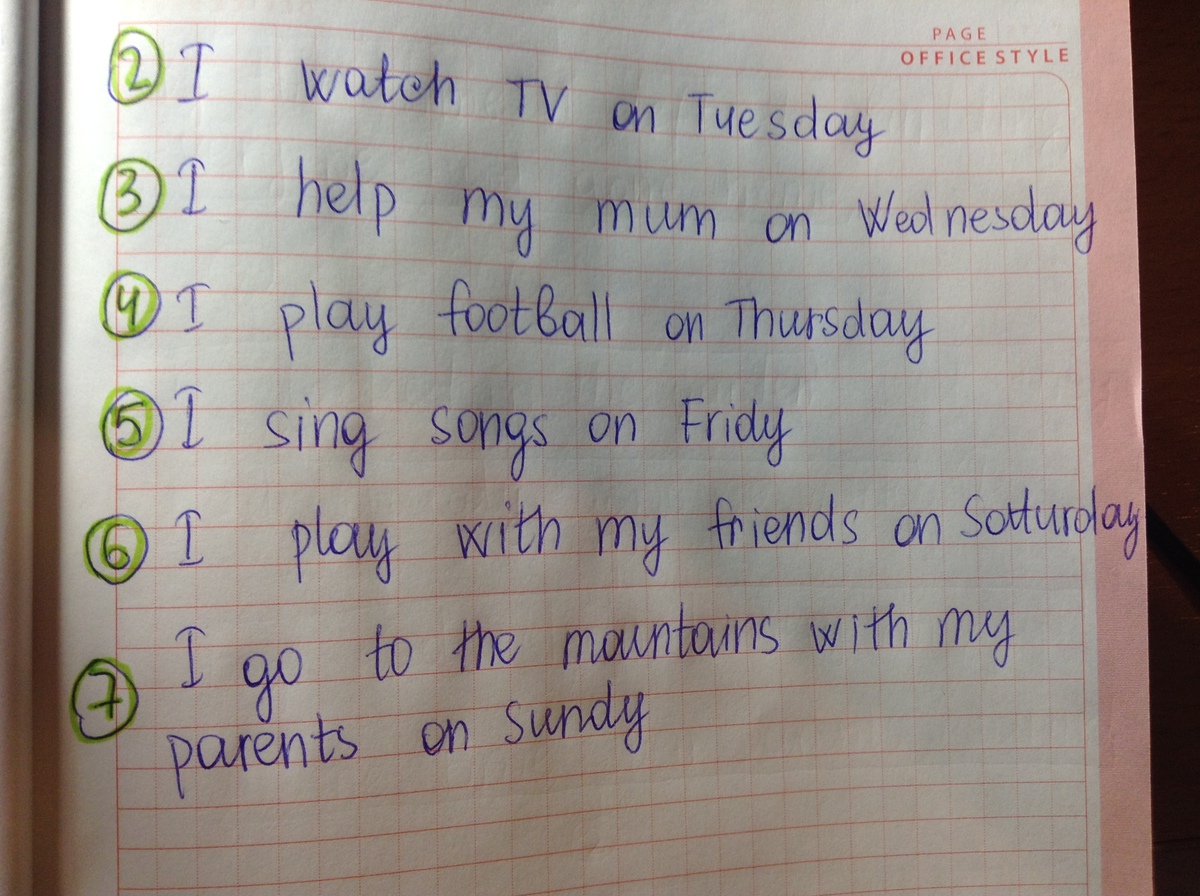 PAGE
OFFICE STYLE
2 I watch TV on Tuesday
3 I help my mum on Wednesday
4 I play football on Thursday
5 I sing songs on Fridy
6 I play with my friends on Satturday
7 I go to the mountains with my
parents on Sundy